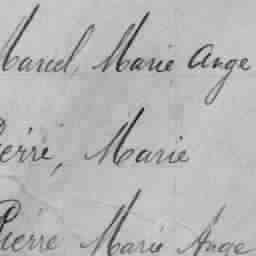 Marcel, Marie Ange
Pierre, Marie
Pierre Marie Ange